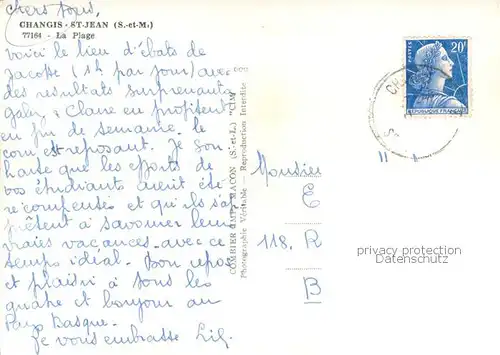 Chers tous,
CHANGIS - ST-JEAN (S.-et-M.)
77164 - La Plage
Voici le lieu d'ébats de
Jacotte (1h par jour) avec
des résultats surprenants
Gaby & Clane en profitent
en fin de semaine. le
coin est reposant. Je sou-
haite que les efforts de
vos étudiants aient été
récompensés et qu'ils s'ap-
prêtent à savourer leurs
vraies vacances. avec ce
temps idéal. Bon repos
et plaisir à tous les
quatre et bonjour au
Pays Basque.
Je vous embrasse
COMBIER IMP. MACON (S.-et-L.) "CIM"
Photographie Véritable - Reproduction Interdite
20F
REPUBLIQUE FRANCAISE
Monsieur
E
118. R
B
privacy protection
Datenschutz